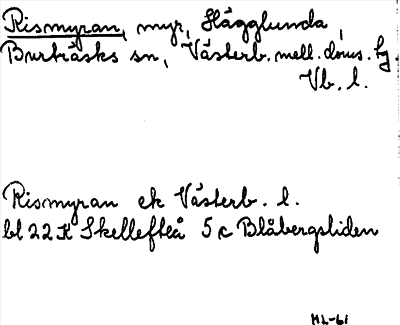 Rismyran, myr, Hägglunda,
Burträsks sn, Västerb. mell. doms. hg.
Vb. l.
Rismyran ek Västerb. l.
bl 22 K Skellefteå 5 c Blåbergsliden
ML-61